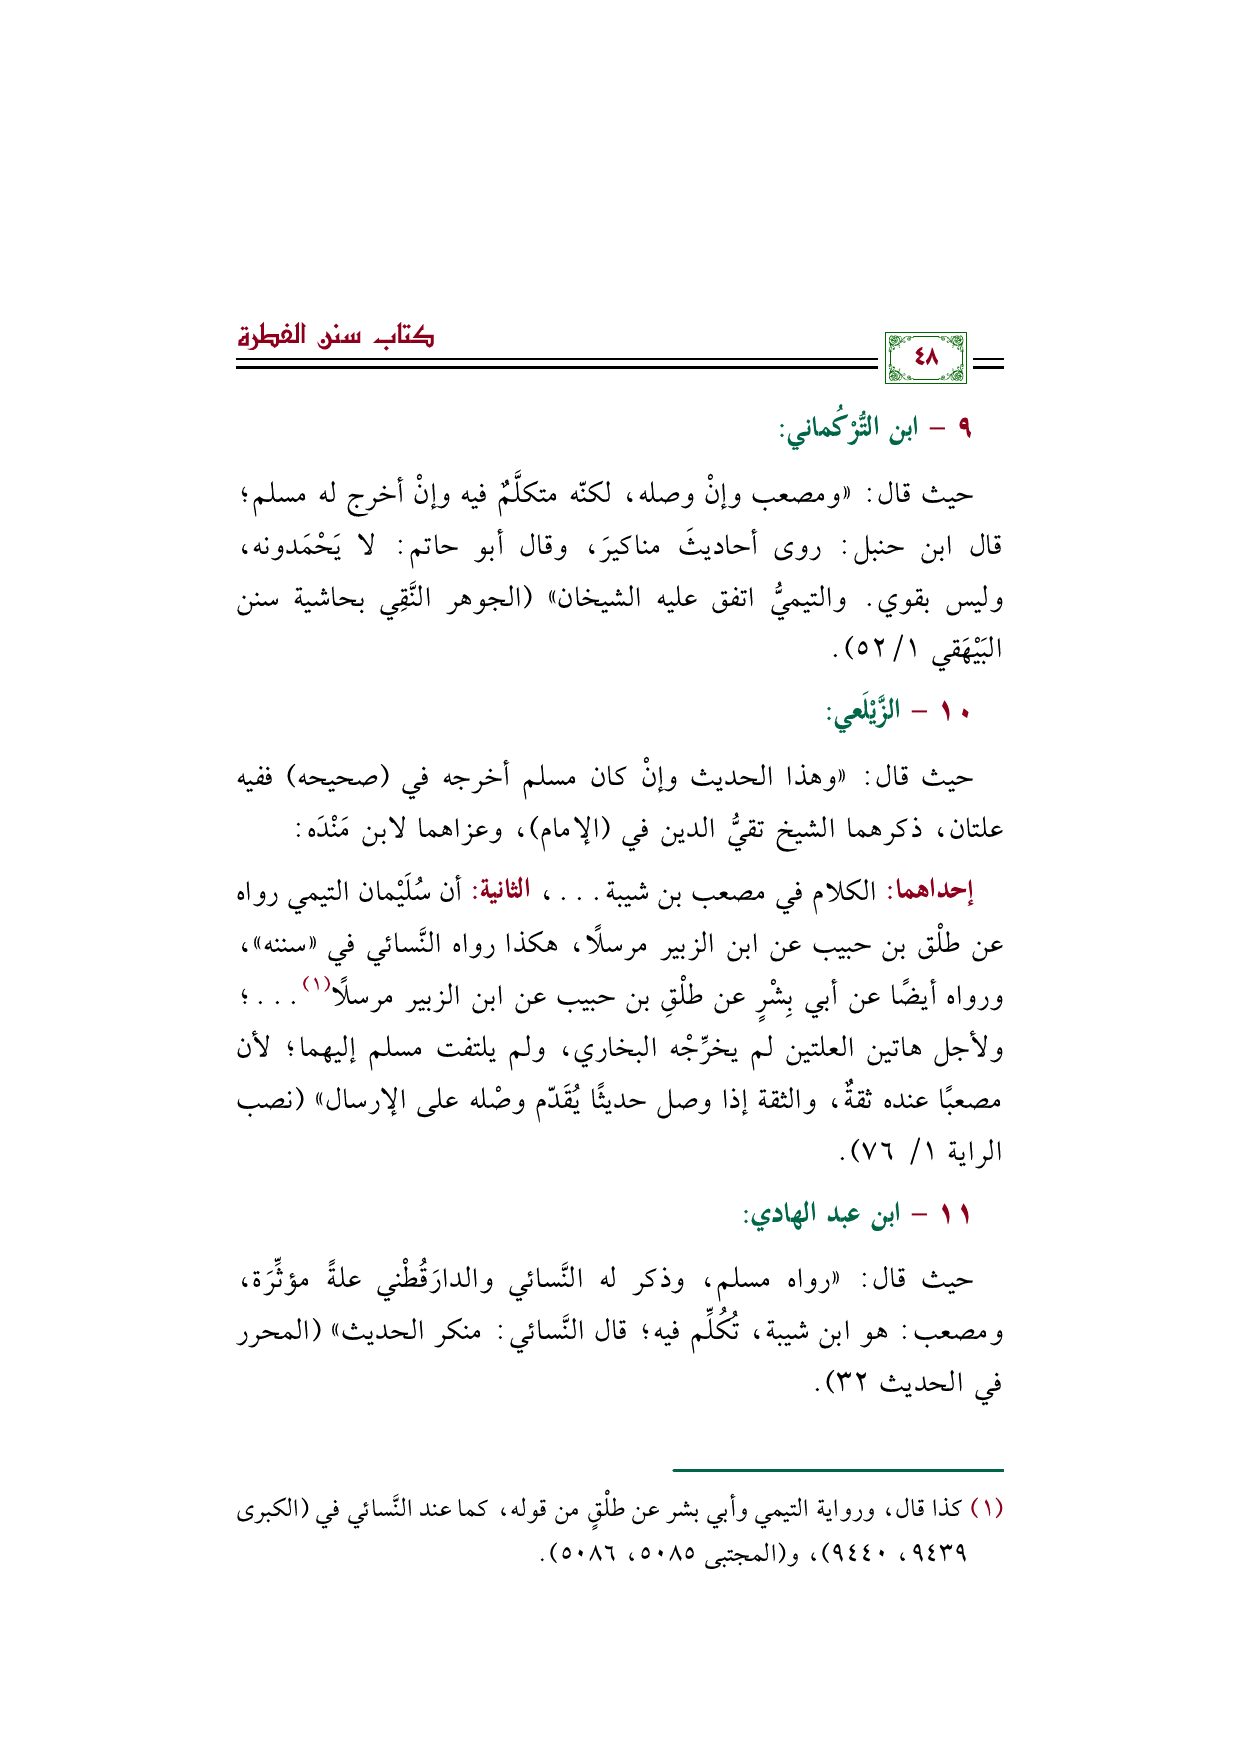 كتاب سنن الفطرة
٤٨
٩ - ابن التُّرْكُماني:
حيث قال: «ومصعب وإنْ وصله، لكنّه متكلَّمٌ فيه وإنْ أخرج له مسلم؛
قال ابن حنبل: روى أحاديثَ مناكيرَ، وقال أبو حاتم: لا يَحْمَدونه،
وليس بقوي. والتيميُّ اتفق عليه الشيخان» (الجوهر النَّقِي بحاشية سنن
البَيْهَقي ١/ ٥٢).
١٠ - الزَّيْلَعي:
حيث قال: «وهذا الحديث وإنْ كان مسلم أخرجه في (صحيحه) ففيه
علتان، ذكرهما الشيخ تقيُّ الدين في (الإمام)، وعزاهما لابن مَنْدَه:
إحداهما: الكلام في مصعب بن شيبة...، الثانية: أن سُلَيْمان التيمي رواه
عن طلْق بن حبيب عن ابن الزبير مرسلًا، هكذا رواه النَّسائي في «سننه»،
ورواه أيضًا عن أبي بِشْرٍ عن طلْقِ بن حبيب عن ابن الزبير مرسلًا(١)...؛
ولأجل هاتين العلتين لم يخرِّجْه البخاري، ولم يلتفت مسلم إليهما؛ لأن
مصعبًا عنده ثقةٌ، والثقة إذا وصل حديثًا يُقَدّم وصْله على الإرسال» (نصب
الراية ١/ ٧٦).
١١ - ابن عبد الهادي:
حيث قال: «رواه مسلم، وذكر له النَّسائي والدارَقُطْني علةً مؤثِّرَة،
ومصعب: هو ابن شيبة، تُكُلِّم فيه؛ قال النَّسائي: منكر الحديث» (المحرر
في الحديث ٣٢).
(١) كذا قال، ورواية التيمي وأبي بشر عن طلْقٍ من قوله، كما عند النَّسائي في (الكبرى
٩٤٣٩، ٩٤٤٠)، و(المجتبى ٥٠٨٥، ٥٠٨٦).